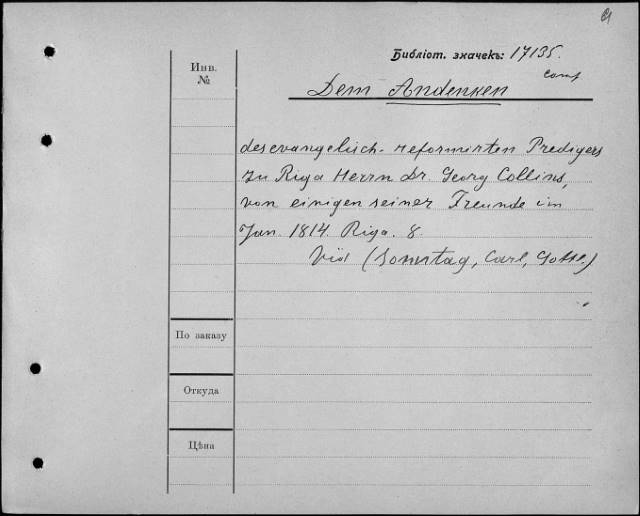 Библіот. значекъ: 17135.
conf
Инв.
№
Dem Andenken
des evangelisch-reformirten Predigers
zu Riga Herrn Dr. Georg Collins,
von einigen seiner Freunde im
Jan. 1814. Riga. 8.
Vid (Sonntag, Carl, Gottl.)
По заказу
Откуда
Цѣна